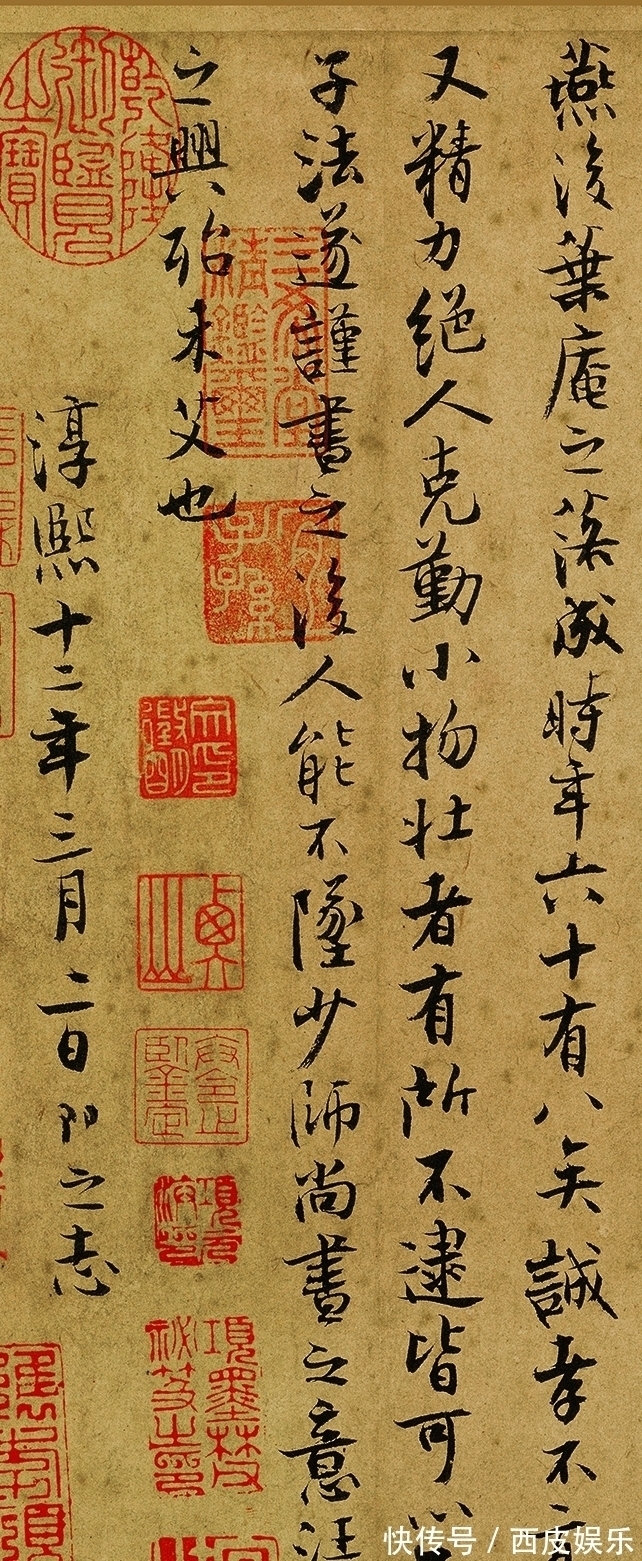 燕後葉庵之落成時年六十有八矣誠孝不
又精力絕人克勤小物壯者有所不逮皆可
子法遂謹書之後人能不墜少師尚書之意汪
之興殆未艾也
淳熙十二年三月二日即之志
乾隆御覽之寶
三希堂精鑑璽
宜子孫
項元汴印
項墨林父祕笈之印
快传号 / 西皮娱乐